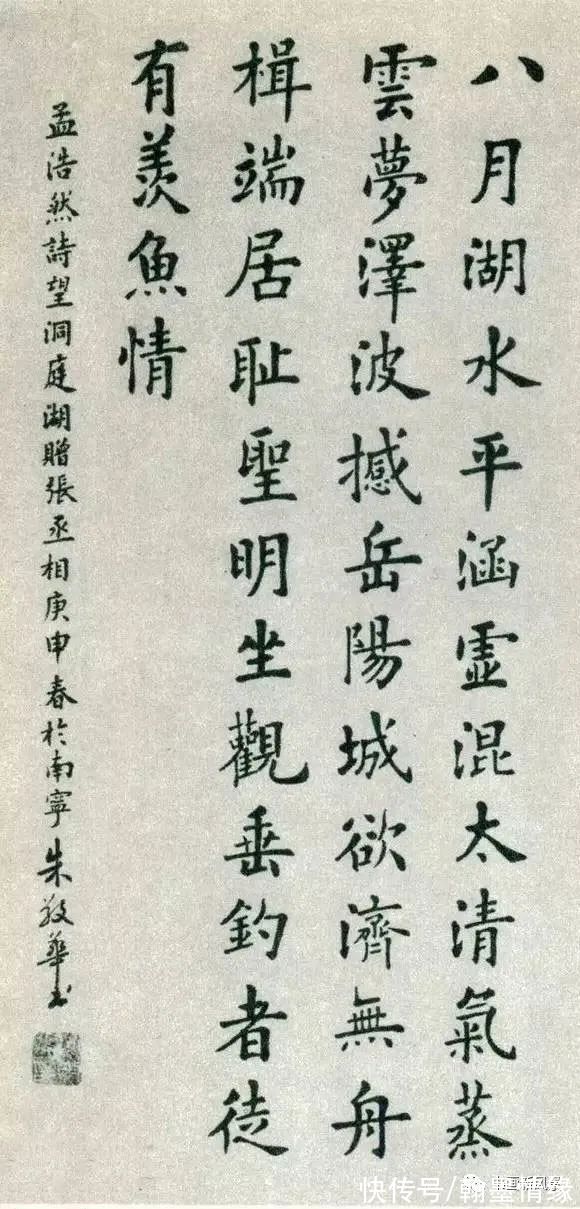 八月湖水平涵虛混太清氣蒸
雲夢澤波撼岳陽城欲濟無舟
楫端居耻聖明坐觀垂釣者徒
有羨魚情
孟浩然詩望洞庭湖贈張丞相庚申春於南寧朱敬華書
快传号/翰墨情缘